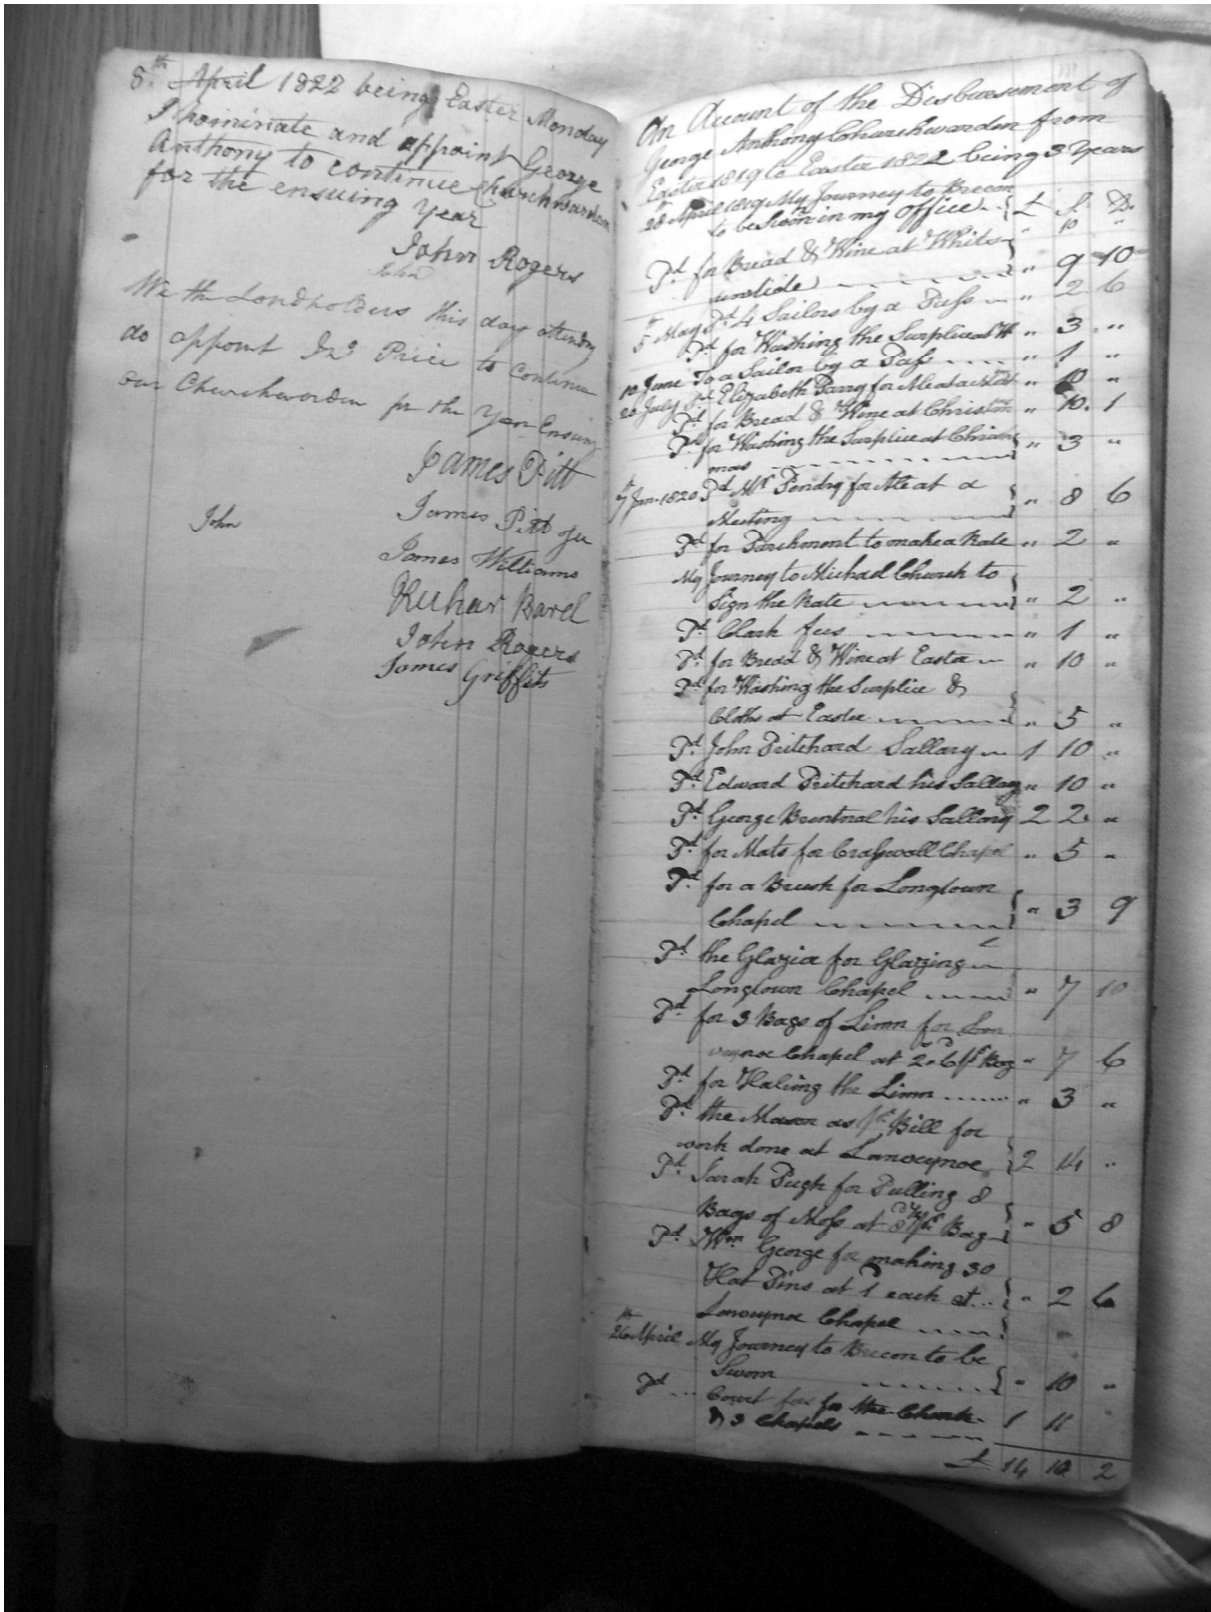 8th April 1822 being Easter Monday
I nominate and appoint George
Anthony to continue Churchwarden
for the ensuing Year
John Rogers
John
We the Landholders this day attending
do appoint Jno Price to continue
our Churchwarden for the Year Ensuing
James Pitt
James Pitt Ju
John
James Williams
Richar Bard
John Rogers
James Griffits
An Account of the Disbursement of
George Anthony Churchwarden from
Easter 1819 to Easter 1822 being 3 Years
28th April 1819 My Journey to Brecon
to be Sworn in my Office £ S. D.
" 10 "
Pd for Bread & Wine at Whits-
untide " 9 10
5th May Pd 4 Sailors by a Pass " 2 6
Pd for Washing the Surplice at W " 3 "
10 June To a Sailor by a Pass " 1 "
20 July pd Elizabeth Parry for Ale at a " 10 "
Pd for Bread & Wine at Christm " 10 1
Pd for Washing the Surplice at Christ
mas " 3 "
7th Jan. 1820 Pd Mr Pendry for Ale at a
Meeting " 8 6
Pd for Parchment to make a Rate " 2 "
My Journey to Michael Church to
Sign the Rate " 2 "
Pd Clark fees " 1 "
Pd for Bread & Wine at Easter " 10 "
Pd for Washing the Surplice &
Cloths at Easter " 5 "
Pd John Pritchard Sallary 1 10 "
Pd Edward Pritchard his Sallary " 10 "
Pd George Brentnal his Sallary 2 2 "
Pd for Mats for Crasswall Chapel " 5 "
Pd for a Brush for Longtown
Chapel " 3 9
Pd the Glazier for Glazing
Longtown Chapel " 7 10
Pd for 3 Bags of Limn for Lan
veynoe Chapel at 2s 6d pr Bag " 7 6
Pd for Haling the Limn " 3 "
Pd the Mason as pr Bill for
work done at Lanveynoe 2 14 "
Pd Sarah Pugh for Pulling 8
Bags of Moss at 8½d pr Bag " 5 8
Pd Wm George for making 30
Hat Pins at 1d each at
Lanveynoe Chapel " 2 6
26th April My Journey to Brecon to be
Sworn " 10 "
Pd Court fees for the Church
& 3 Chapels 1 11
£ 14 10 2